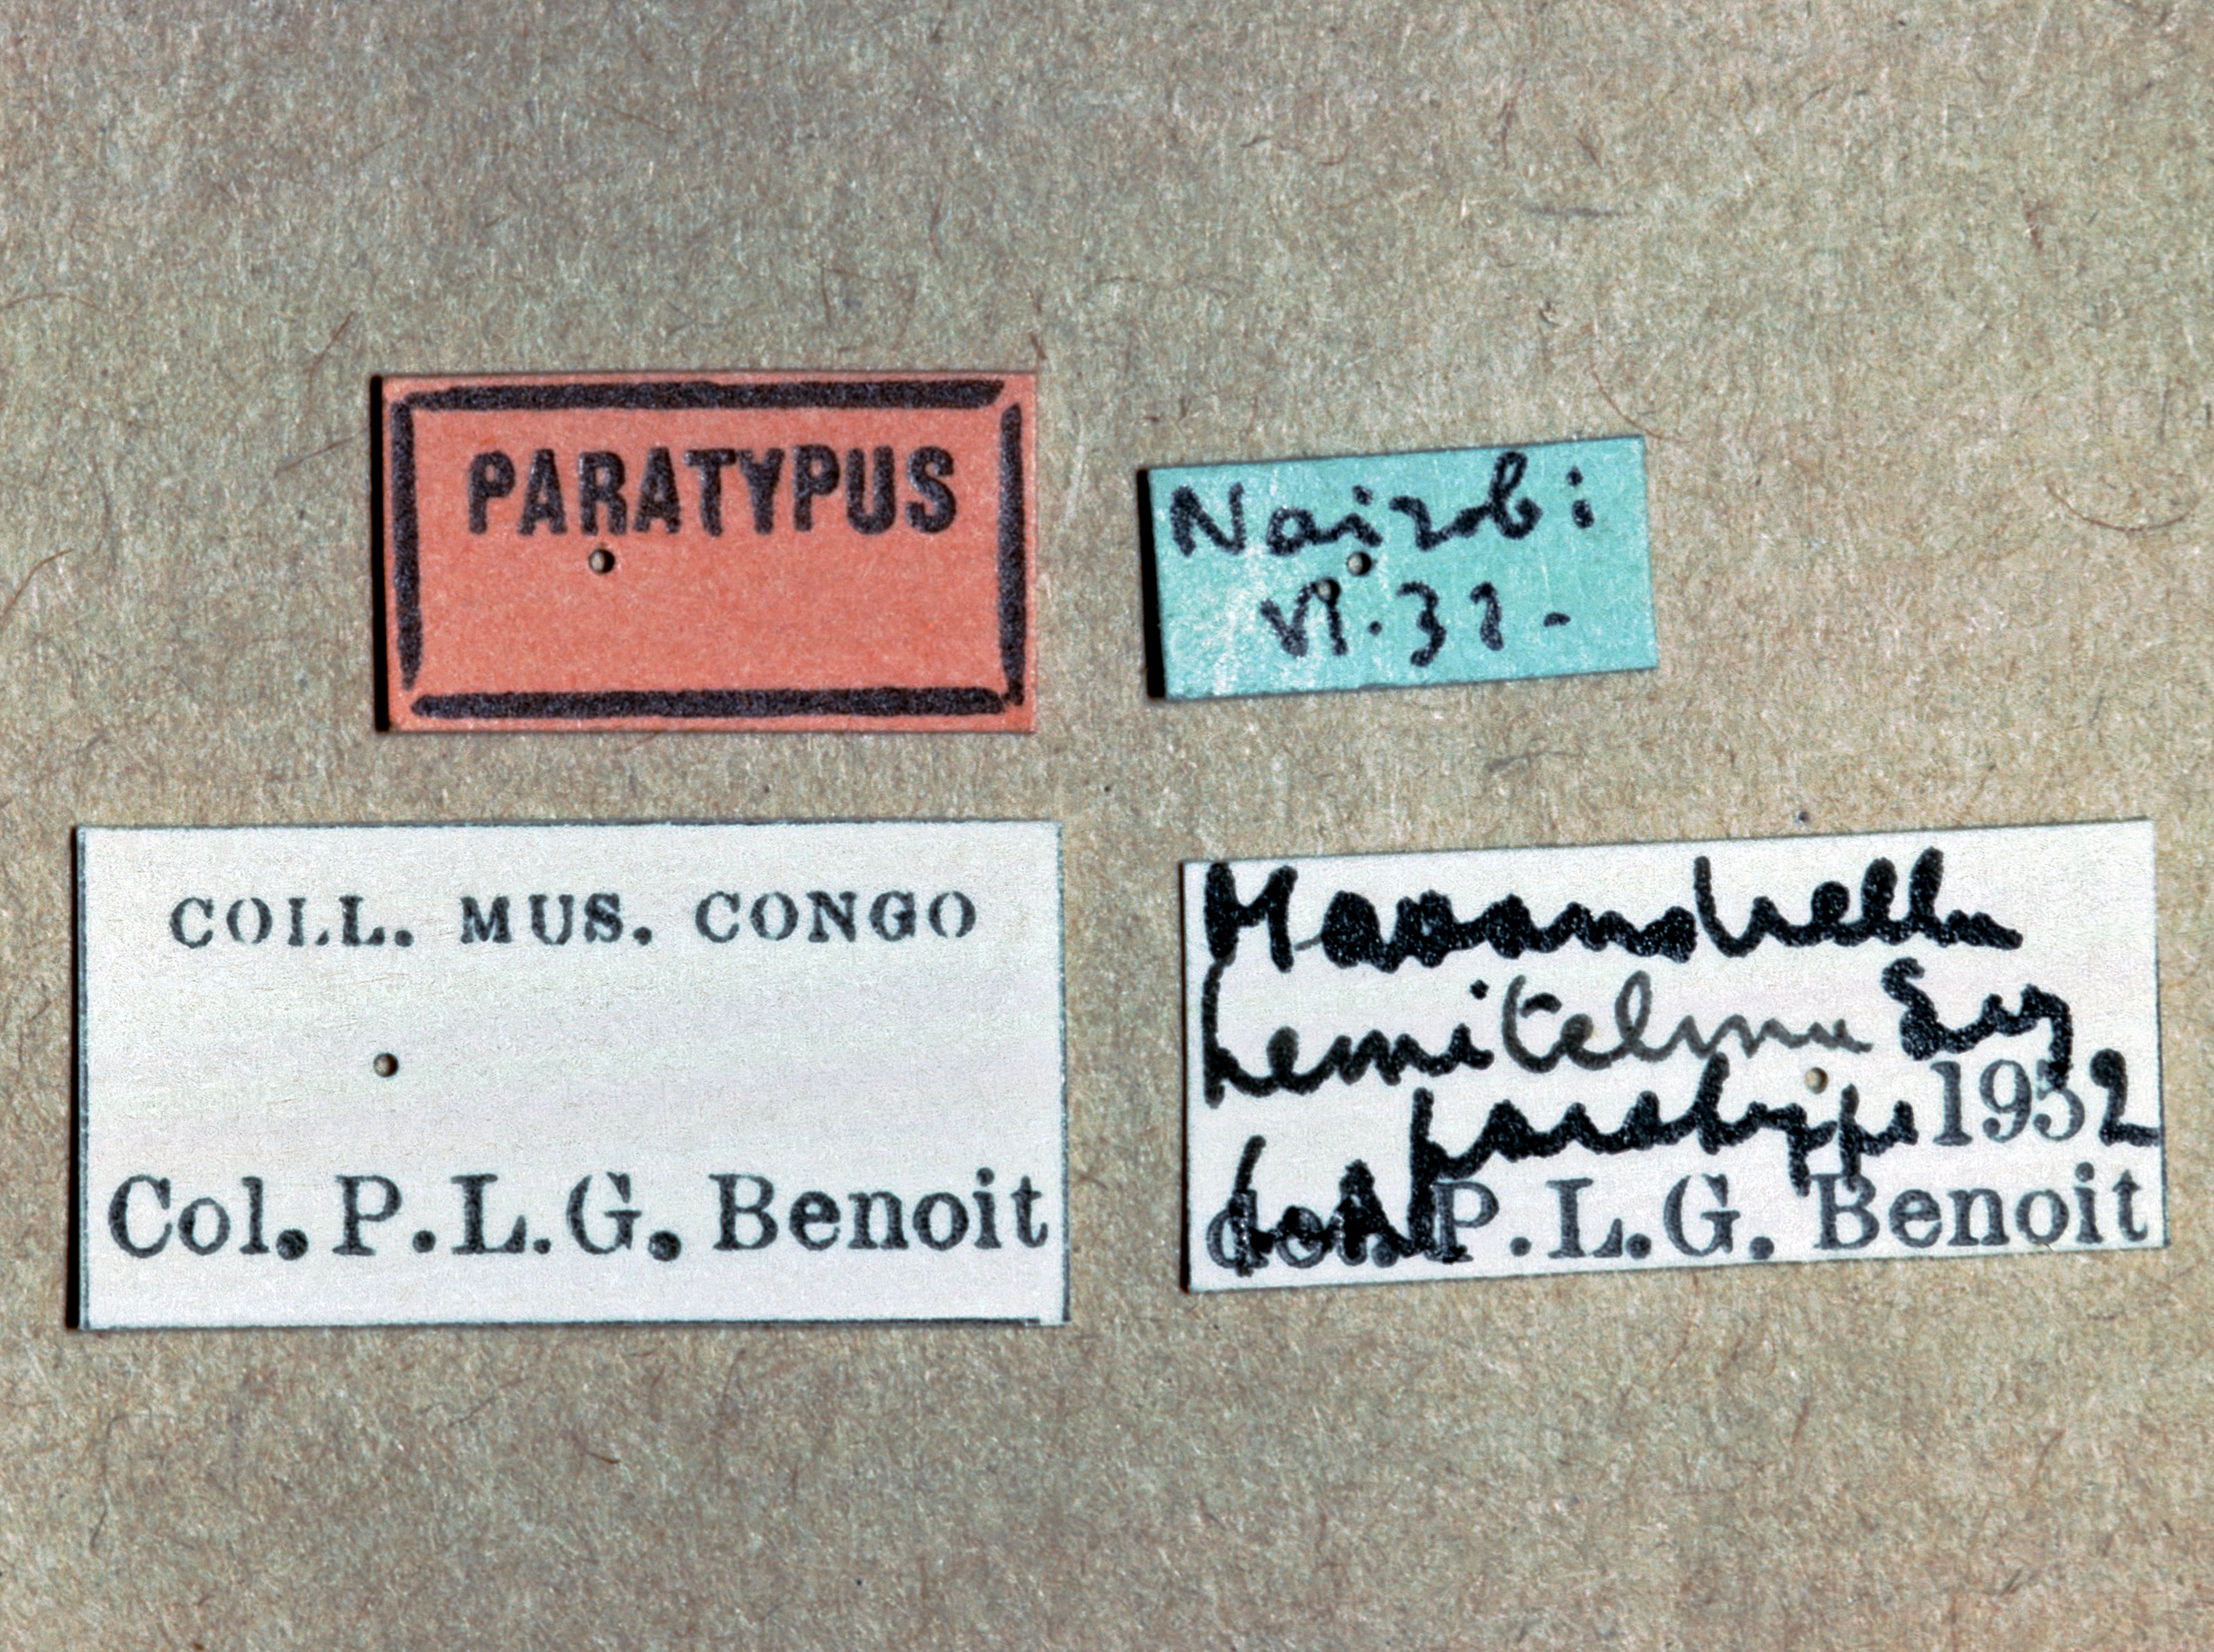 PARATYPUS
Nairobi
VI.31-
COLL. MUS. CONGO
Col. P.L.G. Benoit
hemitelina Sey
paratype 1952
det. P.L.G. Benoit